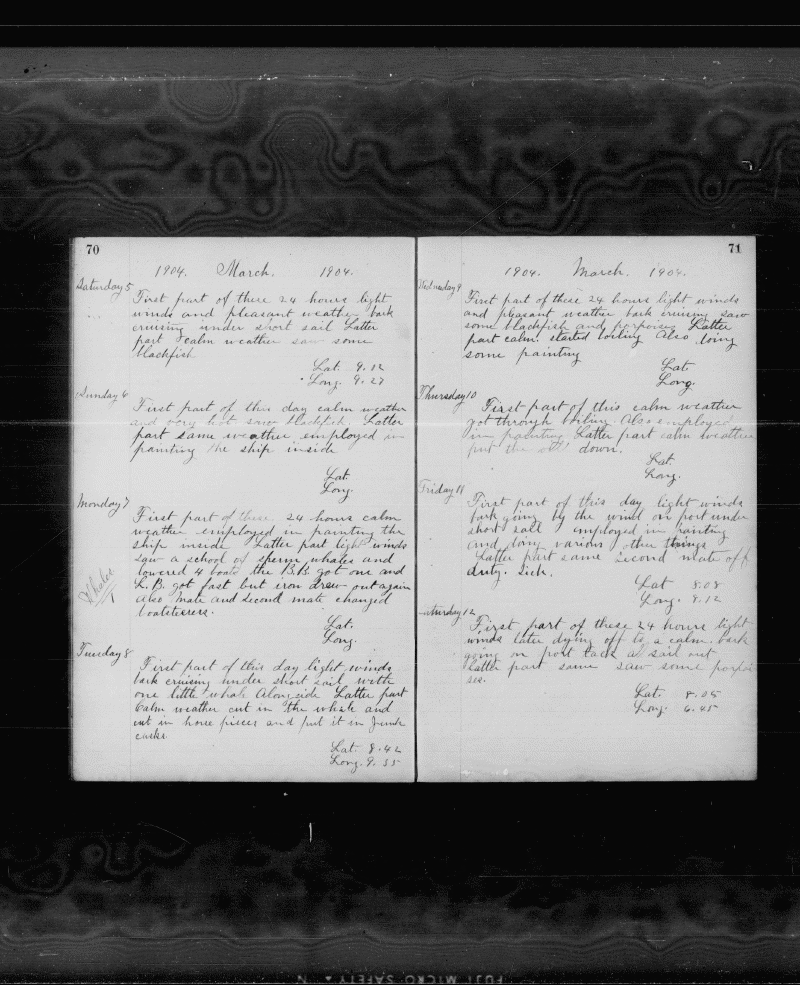 70
1904. March. 1904.
Saturday 5
First part of these 24 hours light
winds and pleasant weather bark
cruising under short sail Latter
part calm weather saw some
blackfish
Lat. 9.12
Long. 9.27
Sunday 6
First part of this day calm weather
and very hot saw blackfish. Latter
part same weather employed in
painting the ship inside
Lat.
Long.
Monday 7
First part of these 24 hours calm
weather employed in painting the
ship inside Latter part light winds
saw a school of sperm whales and
lowered 4 boats the B.B got one and
L.B. got fast but iron drew out again
Also Mate and second mate changed
boatsteerers.
Whales
1
Lat.
Long.
Tuesday 8
First part of this day light winds
bark cruising under short sail with
one little whale Alongside Latter part
Calm weather cut in the whale and
cut in horse pieces and put it in
casks.
Lat. 8.42
Long. 9.35
71
1904. March. 1904.
Wednesday 9
First part of these 24 hours light winds
and pleasant weather bark cruising saw
some blackfish and porpoises Latter
part calm. started boiling Also doing
some painting
Lat.
Long.
Thursday 10
First part of this calm weather
got through boiling Also employed
in painting Latter part calm weather
put the down.
Lat.
Long.
Friday 11
First part of this day light winds
bark going by the wind on port under
short sail employed in painting
and doing various other things
Latter part same second mate off
duty. Sick.
Lat 8.08
Long. 8.12
Saturday 12
First part of these 24 hours light
winds later dying off to a calm. bark
going on port tack a sail out
Latter part same saw some porpoi
ses.
Lat. 8.05
Long. 6.45
FUJI MICRO SAFETY